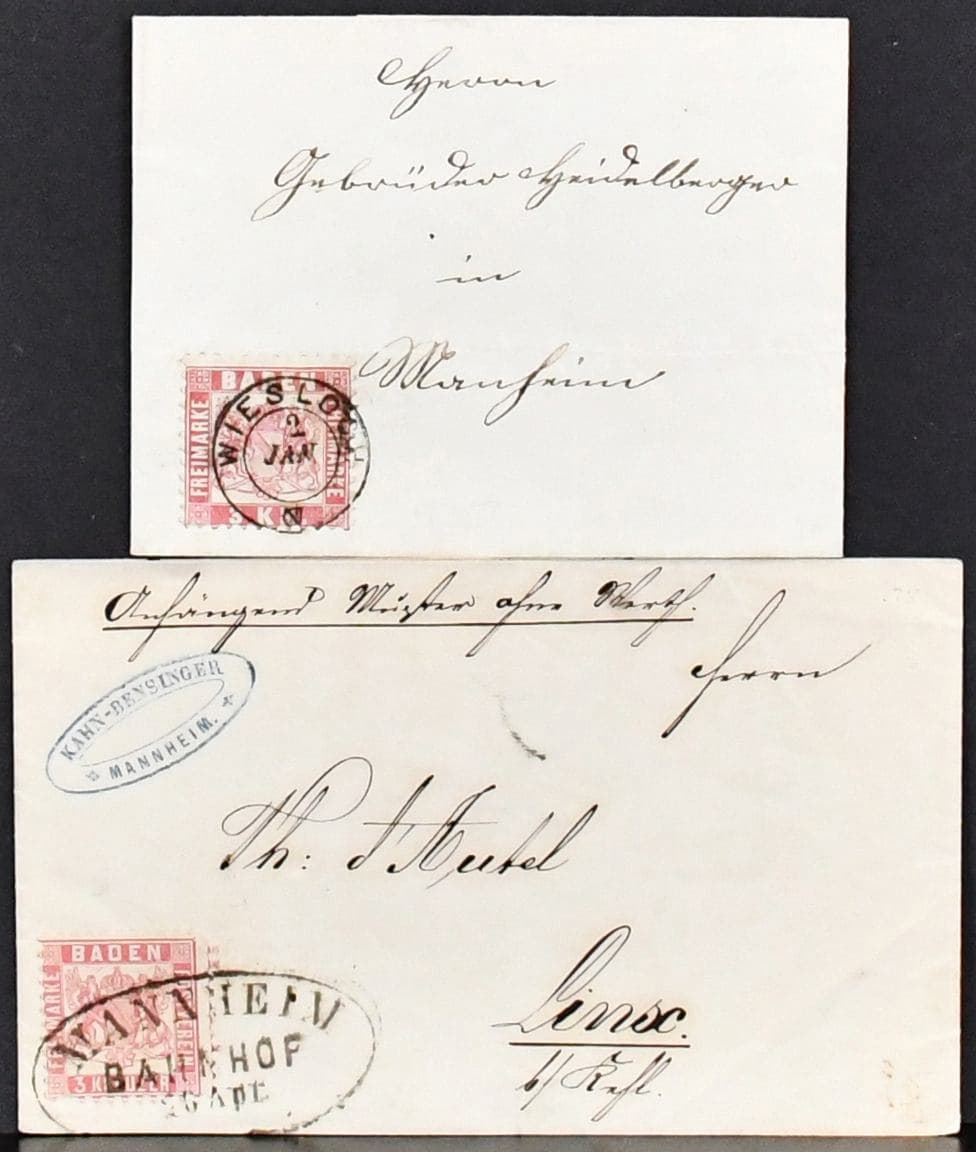 Herrn
Gebrüder Heidelberger
in
Manheim
BADEN
FREIMARKE
FREIMARKE
3 KR.
WIESLOCH
2
JAN
Anhängend Muster ohne Werth.
KAHN-BENSINGER
MANNHEIM.
Herrn
Th: d'Autel
b/ Kehl.
BADEN
FREIMARKE
POSTVEREIN
3 KREUZER
MANNHEIM
BAHNHOF
26 Apr.